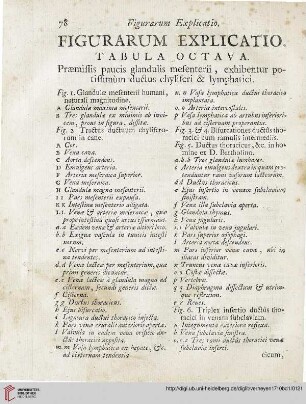 78 Figurarum Explicatio.
FIGURARUM EXPLICATIO.
TABULA OCTAVA.
Præmissis paucis glandulis mesenterii, exhibentur po-
tissimum ductus chyliferi & lymphatici.
Fig. 1. Glandulæ mesenterii humani,
naturali magnitudine.
A Glandula maxima mesenterii.
B Tres glandulæ ex minimis ab invi-
cem, prout in figura, dissitæ.
Fig. 2. Tractus ductuum chylifero-
rum in cane.
A Cor.
B Vena cava.
C Aorta descendens.
D Emulgens arteria.
E Arteria mesenterica superior.
G Vena mesaraica.
H Glandula magna mesenterii.
I I Pars mesenterii expansa.
K K Intestinum mesenterio alligata.
a.a Eædem venæ & arteriæ
e.e Nervi per mesenterium ad intesti-
na tendentes.
d.d Venæ lacteæ per mesenterium, quæ
primi generis dicuntur.
e.e Venæ lacteæ à glandula magna ad
cisternam, secundi generis dictæ.
f Cisterna.
g g Ductus thoracicus.
h Ejus bifurcatio.
i Ligatura ductui thoracico injecta.
k Pars venæ cruralis anterioris aperta.
l Valvula in eadem venæ orificio du-
ctus thoracici angusta.
m.m Vasa lymphatica ex hepate, &c.
ad cisternam tendentia
n.n Vasa lymphatica ductui thoracico
implantata.
o.o Arteriæ intercostales.
p Vasa lymphatica ab artubus inferiori-
bus ad cisternam properantia.
Fig. 3. & 4. Bifurcationes ductus tho-
racici cum ramulis intermediis.
Fig. 5. Ductus thoracicus, &c. in ho-
mine et D. Bartholino.
a.b.b Tres glandulæ lumbares.
d.d Ductus thoracicus.
e Ejus insertio in venam subclaviam
sinistram.
f Vena illa subclavia aperta.
g Glandula thymus.
h Venæ jugulares.
i.i Valvulæ in vena jugulari.
k Pars superior œsophagi.
l Arteria aorta descendens.
m Pars inferior venæ cavæ, ubi in
iliacas dividitur.
n Truncus venæ cavæ inferioris.
o.o Costæ dissectæ.
p Vertebræ.
q q Diaphragma dissectum & utrim-
que reflexum.
r r Renes.
Fig. 6. Triplex insertio ductus tho-
racici in venam subclaviam.
a Integumenta exteriora reflexa.
b Vena subclavia.
c.c.c Tres rami ductus thoracici venæ
subclaviæ inserti.
dicum,
UNIVERSITÄTS-
BIBLIOTHEK
HEIDELBERG